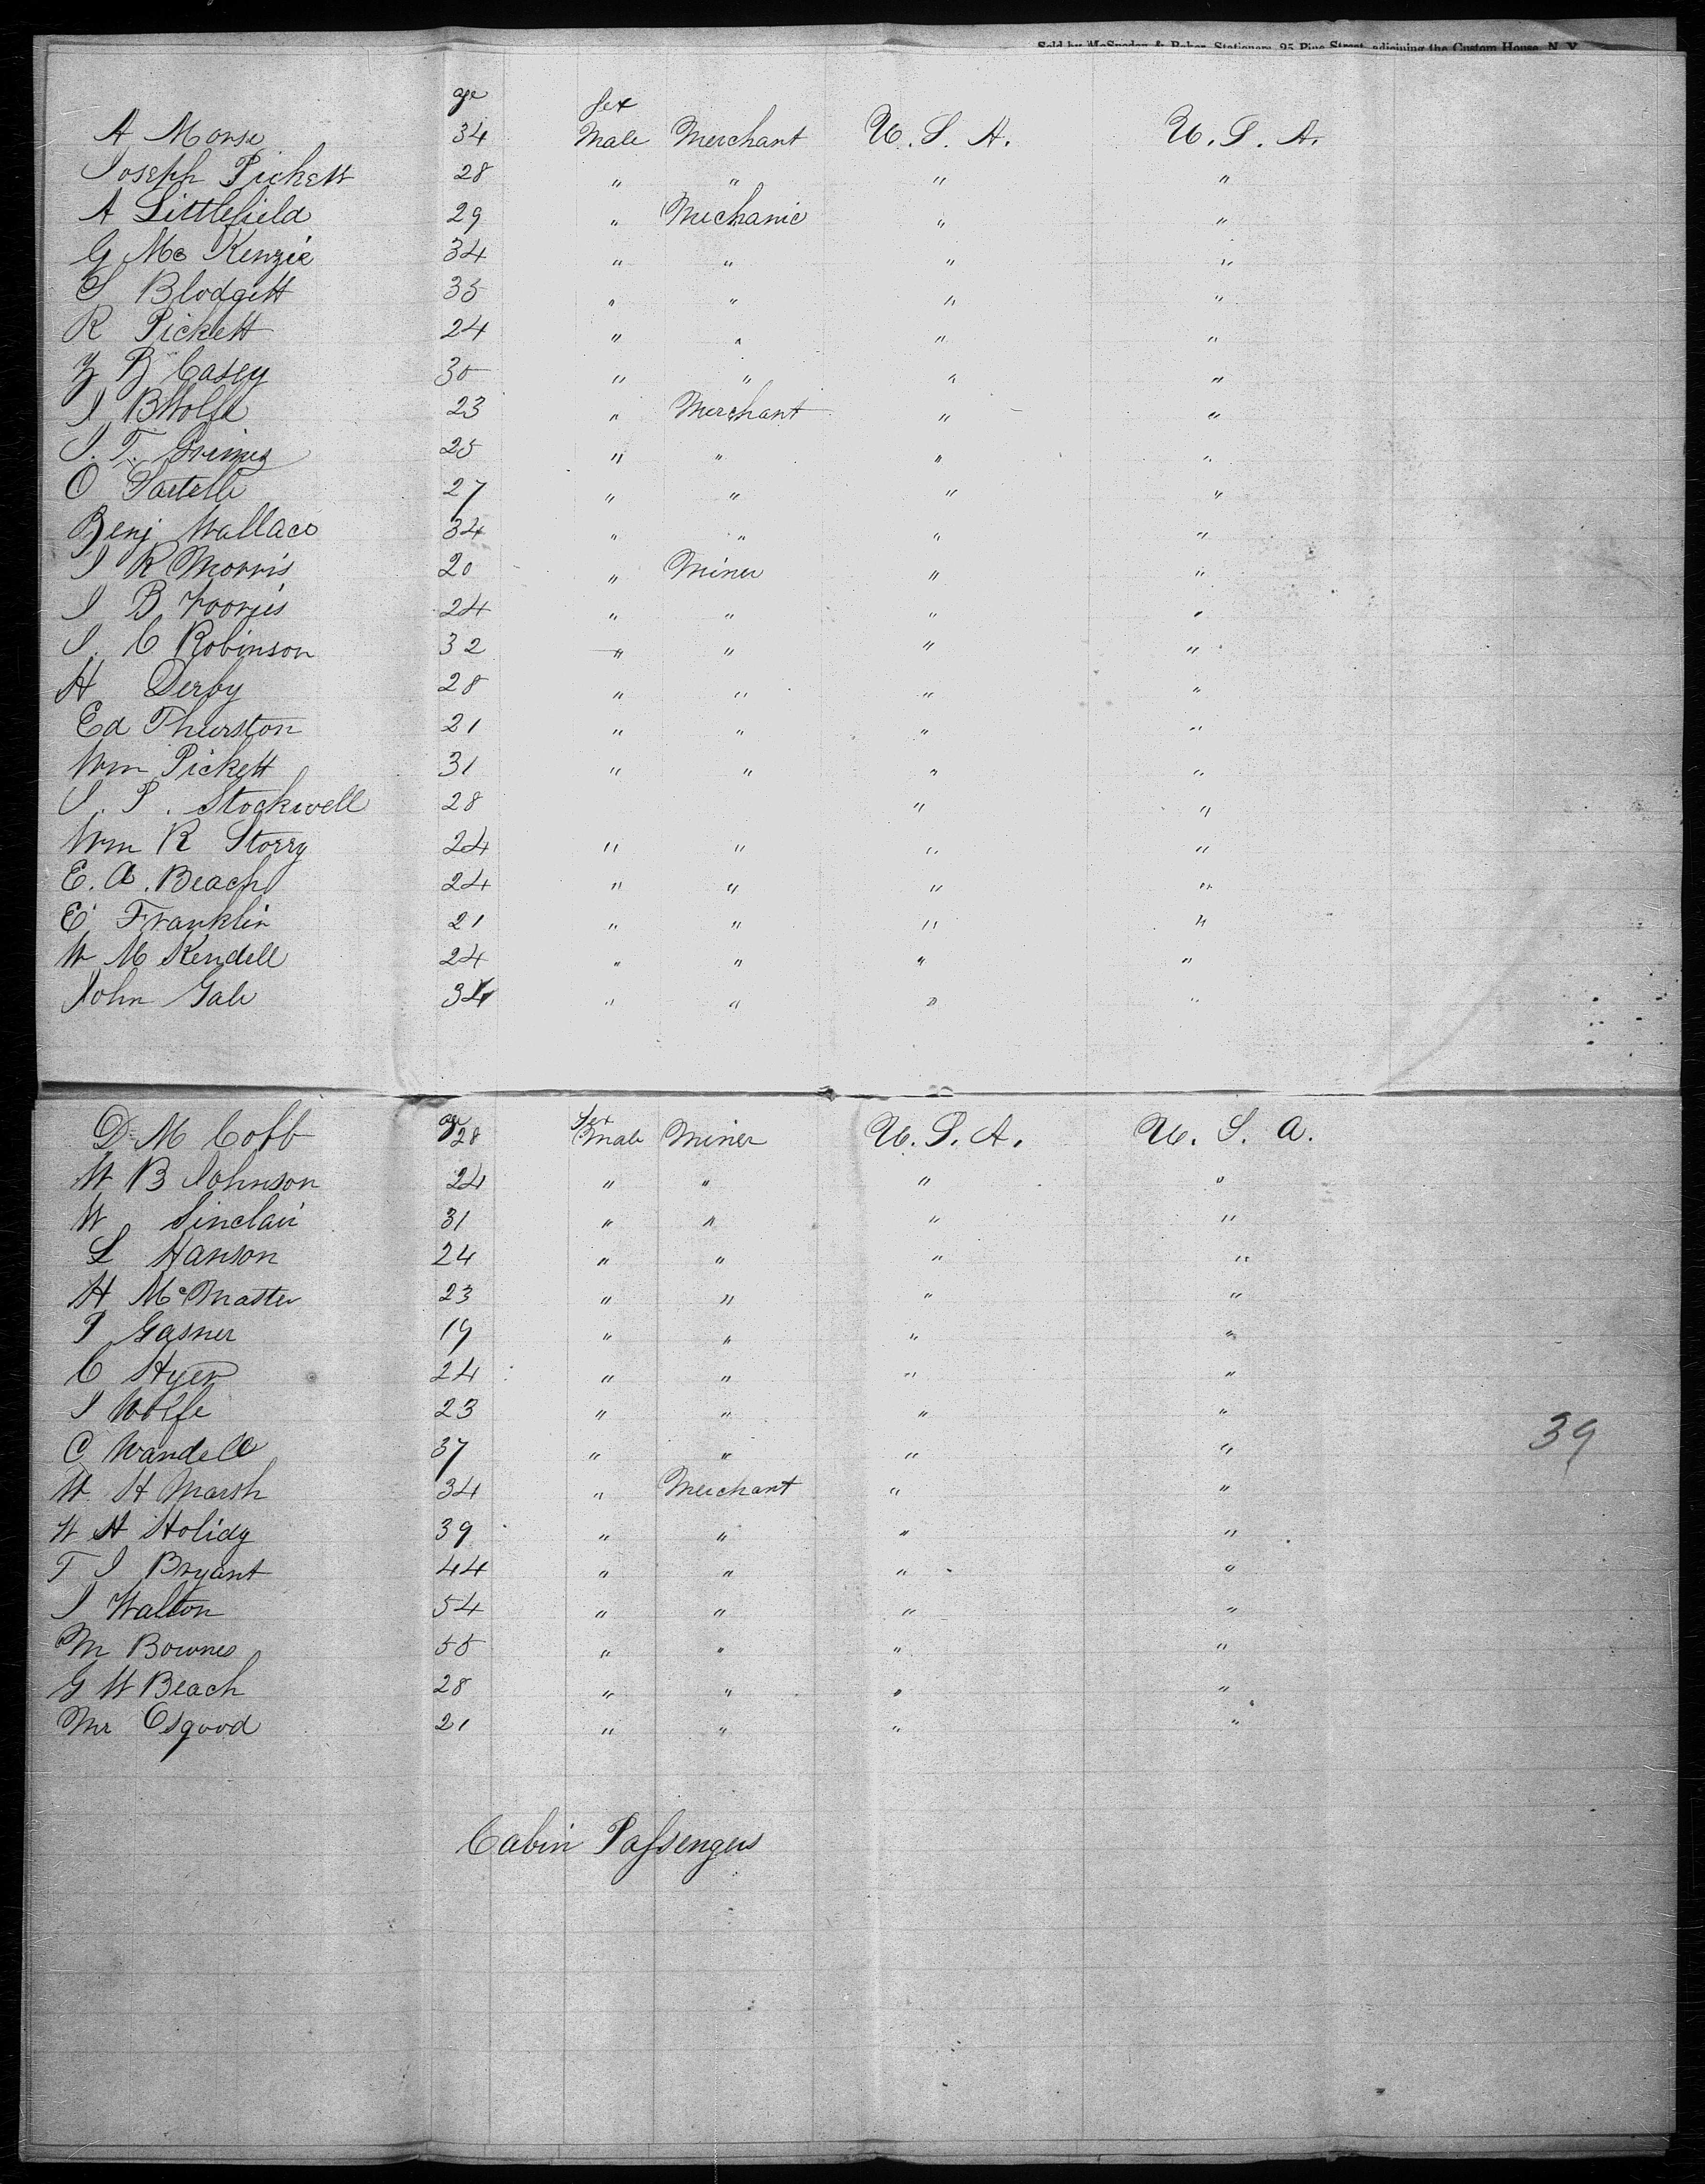 Sold by McSpedon & Baker, Stationers, 25 Pine Street, adjoining the Custom House, N. Y.
age Sex
A Morse 34 Male Merchant U. S. A. U. S. A.
Joseph Pickett 28 " " " "
A Littlefield 29 " Mechanic " "
G Mc Kenzie 34 " " " "
S Blodgett 35 " " " "
R Pickett 24 " " " "
Z B Casey 30 " " " "
J B Wolfe 23 " Merchant " "
S. T. Grimes 25 " " " "
O 27 " " " "
Benj Wallace 34 " " " "
J R Morris 20 " Miner " "
J B Voories 24 " " " "
S. C Robinson 32 " " " "
H Derby 28 " " " "
Ed Thurston 21 " " " "
Wm Pickett 31 " " " "
S. P. Stockwell 28 " "
Wm R Storry 24 " " " "
E. A. Beach 24 " " " "
E Franklin 21 " " " "
W M Kendell 24 " " " "
John Gale 34 " " " "
age Sex
D M Cobb 28 Male Miner U. S. A. U. S. A.
W B Johnson 24 " " " "
W Sinclair 31 " " " "
L Hanson 24 " " " "
H McMaster 23 " " " "
P Gasner 19 " " " "
C Hyer 24 " " " "
J Wolfe 23 " " " "
C Wandell 37 " " " "
39
W. H Marsh 34 " Merchant " "
W H Holidy 39 " " " "
T J Bryant 44 " " " "
J Walton 54 " " " "
M Bownes 55 " " " "
G W Beach 28 " " " "
Mr Osgood 21 " " " "
Cabin Passengers